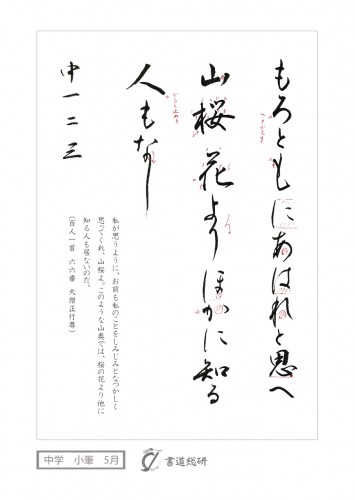 もろともにあはれと思へ
山桜花よりほかに知る
人もなし
中一二三
私が思うように、お前も私のことをしみじみとなつかしく
思ってくれ、山桜よ。このような山奥では、桜の花より他に
知る人も居ないのだ。
（百人一首　六六番　大僧正行尊）
中学　小筆　5月
書道総研